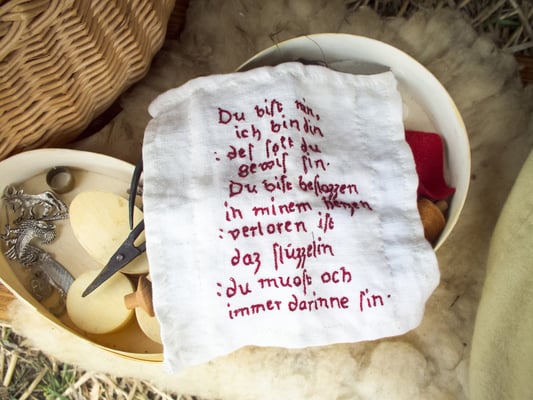 Du biſt min,
ich bin din
: deſ ſolt du
gewiſ ſin.
Du biſt beſlozzen
in minem Herzen
: verloren iſt
daz ſlüzzelin
: du muoſt och
immer darinne ſin.